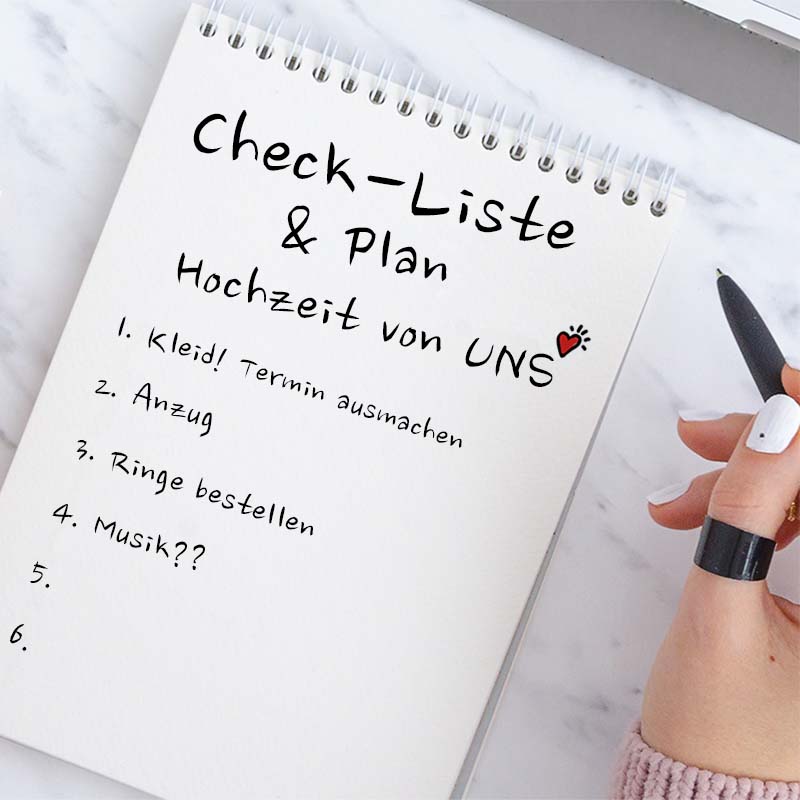 Check-Liste
& Plan
Hochzeit von UNS
1. Kleid! Termin ausmachen
2. Anzug
3. Ringe bestellen
4. Musik??
5.
6.